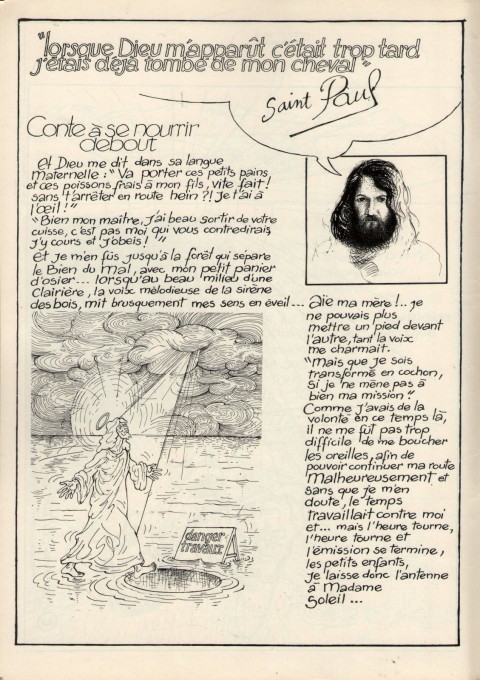 "lorsque Dieu m'apparût c'était trop tard
j'étais déjà tombé de mon cheval"
Saint Paul
Conte à se nourrir
debout
Et Dieu me dit dans sa langue
Maternelle : "Va porter ces petits pains
et ces poissons frais à mon fils, vite fait !
sans t'arrêter en route hein ?! Je t'ai à
l'œil !"
"Bien mon maitre, j'ai beau sortir de votre
cuisse, c'est pas moi qui vous contredirais
j'y cours et j'obéis ! "
et je m'en fûs jusqu'à la forêt qui sépare
le Bien du Mal, avec mon petit panier
d'osier... lorsqu'au beau milieu d'une
Clairière, la voix mélodieuse de la sirène
des bois, mit brusquement mes sens en éveil ...
Aïe ma mère !.. je
ne pouvais plus
mettre un pied devant
l'autre, tant la voix
me charmait.
"Mais que je sois
transformé en cochon,
si je ne mène pas à
bien ma mission"
Comme j'avais de la
volonté en ce temps là,
il ne me fût pas trop
difficile de me boucher
les oreilles, afin de
pouvoir continuer ma route
Malheureusement et
sans que je m'en
doute, le temps
travaillait contre moi
et... mais l'heure tourne,
l'heure tourne et
l'émission se termine,
les petits enfants,
je laisse donc l'antenne
à Madame
Soleil ...
danger
travaux